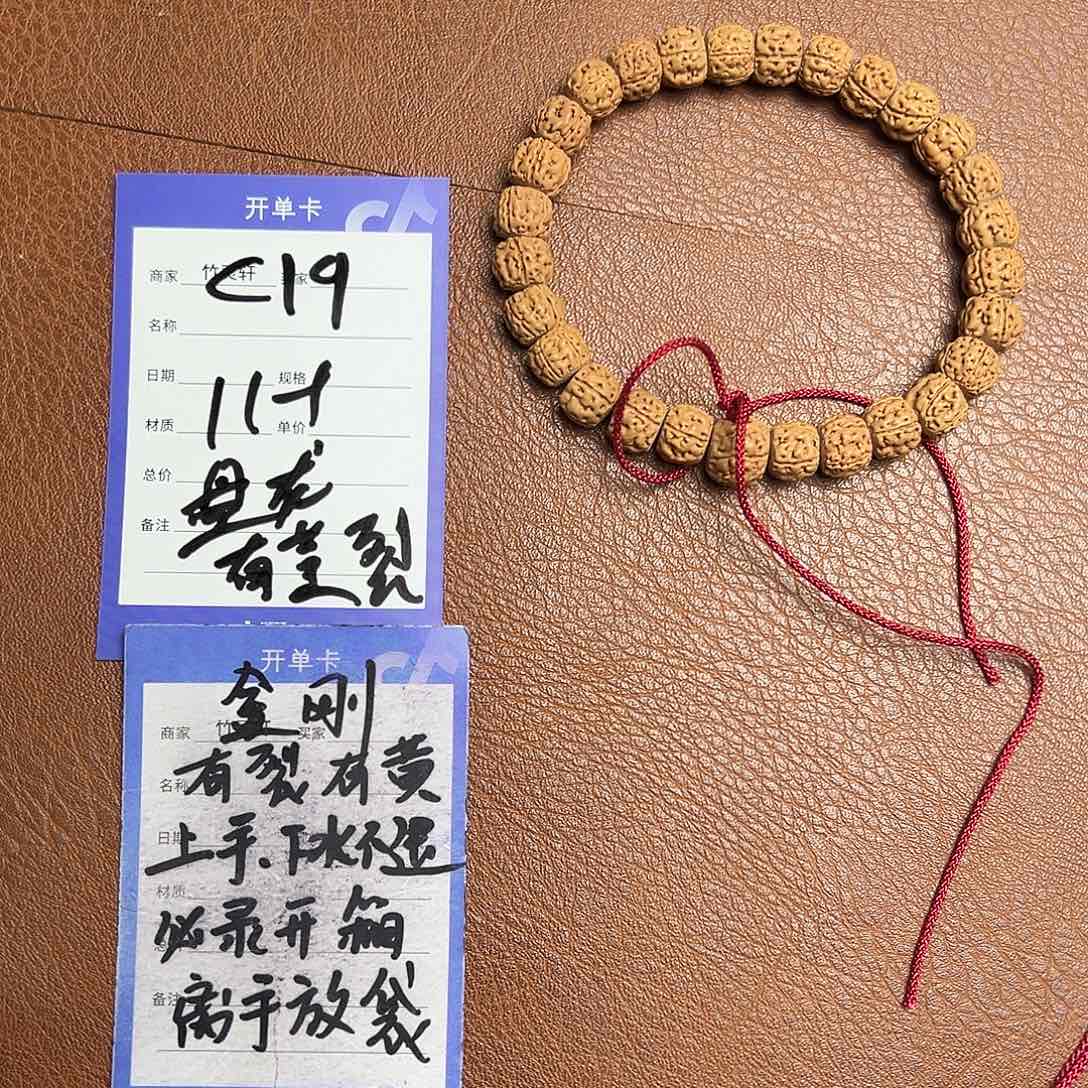 开单卡
商家 竹 轩 家
C19
名称
日期 规格
11+
材质 单价
总价
盘龙
备注
有 裂
开单卡
金刚
商家 竹 买家
名称
有裂有黄
日期
上手、下水不退
材质
必录开箱
备注
离手放袋